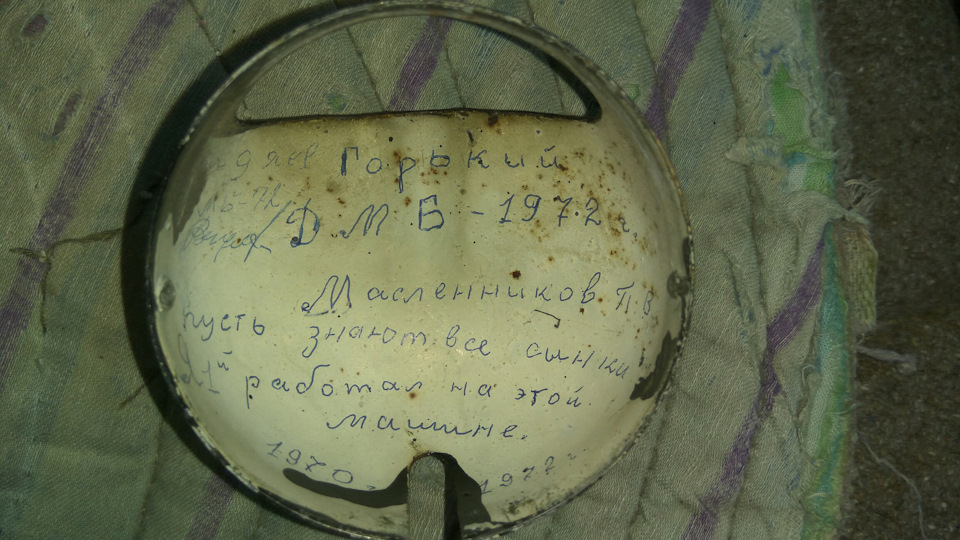 Горький
ДМБ-1972г.
Масленников П.В.
пусть знают все сынки
21й работал на этой
машине.
1970г 1972г.